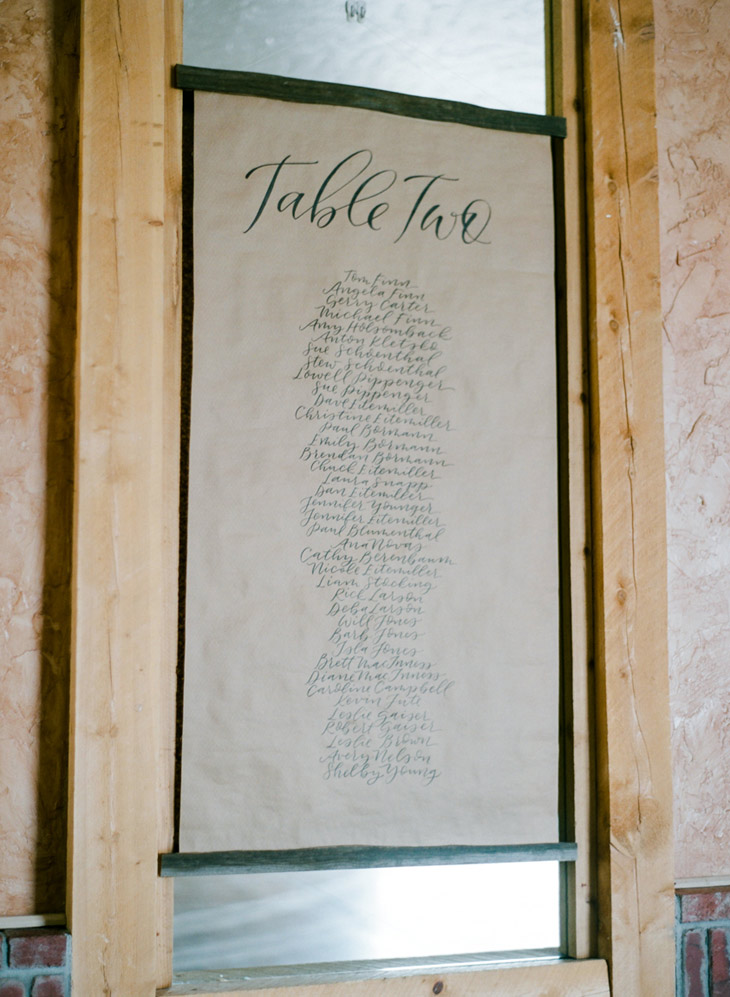 Table Two
Tom Finn
Angela Finn
Gerry Carter
Michael Finn
Amy Holsomback
Anton Kletsko
Sue Schoenthal
Stew Schoenthal
Lowell Pippenger
Sue Pippenger
Dave Eitemiller
Christine Eitemiller
Paul Bormann
Emily Bormann
Brendan Bormann
Chuck Eitemiller
Laura Snapp
Dan Eitemiller
Jennifer Younger
Jennifer Eitemiller
Paul Blumenthal
Ana Novas
Cathy Berenbaum
Nicole Eitemiller
Liam Stocking
Rick Larson
Deba Larson
Will Jones
Barb Jones
Isla Jones
Brett MacInness
Diane MacInness
Caroline Campbell
Kevin
Leslie Gaiser
Robert Gaiser
Leslie Brown
Avery Nelson
Shelby Young